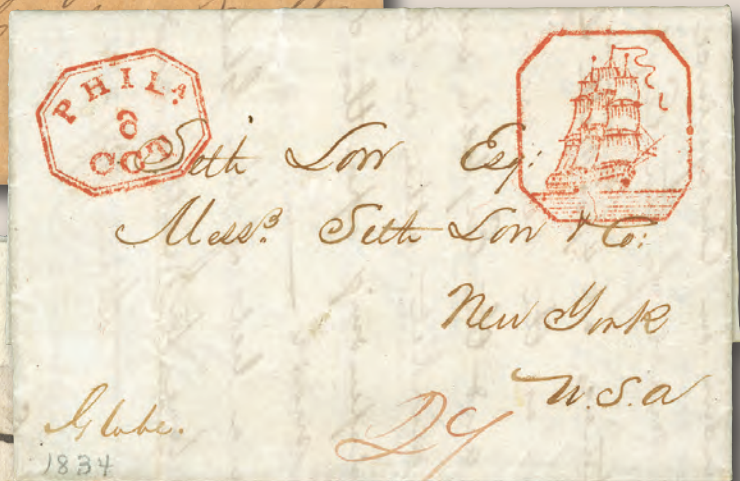 PHILA.
8
OCT
Seth Low Esqr:
Messrs. Seth Low & Co:
New York
U.S.a
Globe.
1834
27